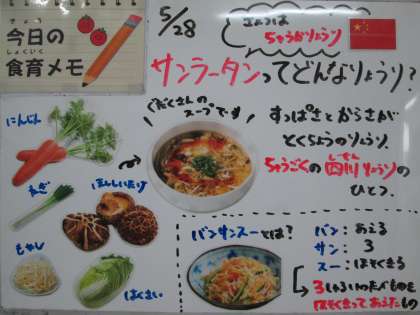 きょう
今日の
しょくいく
食育メモ
5/28
きょうは
ちゅうかりょうり
サンラータンってどんなりょうり?
ぐだくさんの
スープです
すっぱさとからさが
とくちょうのりょうり。
しせん
ちゅうごくの四川りょうりの
ひとつ。
にんじん
ねぎ
ほししいたけ
もやし
はくさい
バンサンスーとは?
バン:あえる
サン:3
スー:ほそくきる
3しゅるいのたべものを
ほそくきってあえたもの